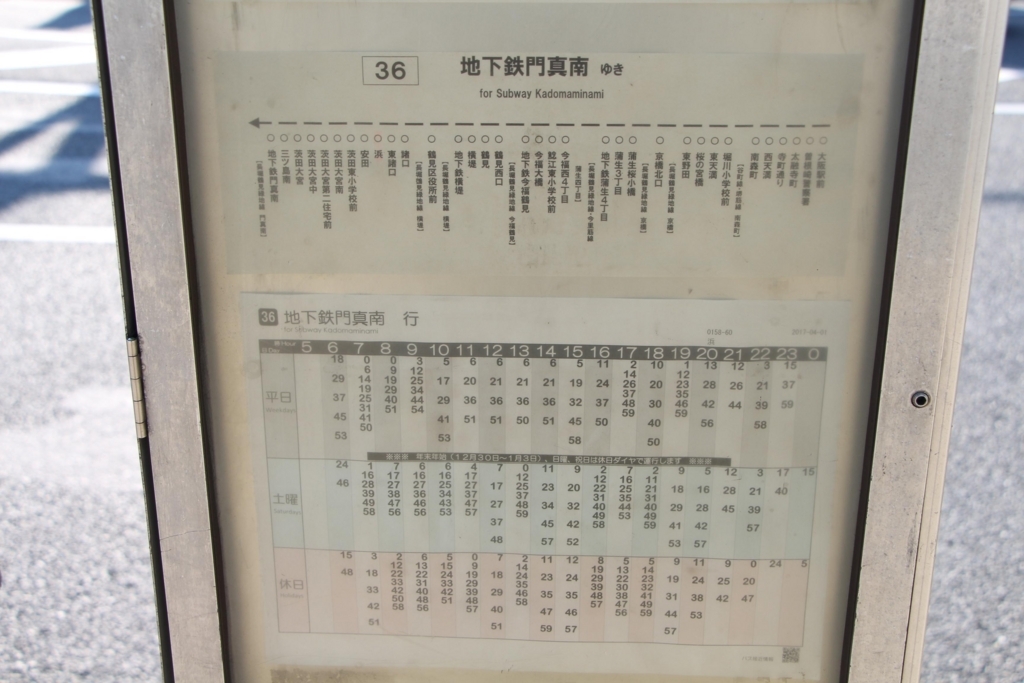 36 地下鉄門真南 ゆき
for Subway Kadomaminami
地下鉄門真南
[長堀鶴見緑地線 門真南]
三ツ島南
茨田大宮
茨田大宮中
茨田大宮第二住宅前
茨田大宮南
茨田東小学校前
安田
浜
東諸口
諸口
鶴見区役所前
[長堀鶴見緑地線 横堤]
地下鉄横堤
[長堀鶴見緑地線 横堤]
横堤
鶴見
鶴見西口
地下鉄今福鶴見
[長堀鶴見緑地線 今福鶴見]
今福大橋
鯰江東小学校前
今福西4丁目
地下鉄蒲生4丁目
蒲生四丁目
[長堀鶴見緑地線・今里筋線
蒲生3丁目
蒲生桜小橋
京橋北口
[長堀鶴見緑地線 京橋]
[長堀鶴見緑地線 京橋]
東野田
桜の宮橋
東天満
堀川小学校前
[谷町線・堺筋線 南森町]
南森町
西天満
寺町通り
太融寺町
曽根崎警察署
大阪駅前
36 地下鉄門真南 行
for Subway Kadomaminami
0158-60
浜
時Hour 5 6 7 8 9 10 11 12 13 14 15 16 17 18 19 20 21 22 23 0
平日
18 0 0 3 5 6 6 6 6 5 11 2 10 1 13 12 3 15
6 9 12 14 12
29 14 19 25 17 20 21 21 21 19 24 26 20 23 28 26 21 37
37 19 29 34 37 35
25 40 44 29 36 36 36 36 32 37 48 30 46 42 44 39 59
45 31 51 54 59 59
41 41 51 51 50 51 45 50 40 56 58
53 50 53 58 50
※※※ 年末年始(12月30日～1月3日)、日曜、祝日は休日ダイヤで運行します ※※※
土曜
24 1 7 6 6 4 7 0 11 9 2 7 2 9 5 12 3 17 15
16 17 16 16 17 12 12 16 11
46 28 27 27 25 27 17 25 23 20 22 25 21 18 16 28 21 40
39 38 36 34 37 37 31 35 31
49 47 46 43 47 27 48 34 32 40 44 40 29 28 45 39
58 56 56 53 57 59 49 53 49
37 45 42 58 59 41 42 57
48 57 52 53 57
休日
15 3 2 6 5 0 7 2 11 12 8 5 5 9 11 9 0 24 5
12 13 15 9 14 19 13 14
48 18 22 22 24 19 18 24 23 24 29 22 23 19 24 25 20
33 31 33 29 35 39 30 32
33 42 40 42 39 29 46 35 35 48 38 41 31 38 42 47
50 48 51 48 58 57 47 49
42 58 56 57 40 47 46 56 59 44 53
51 51 59 57 57